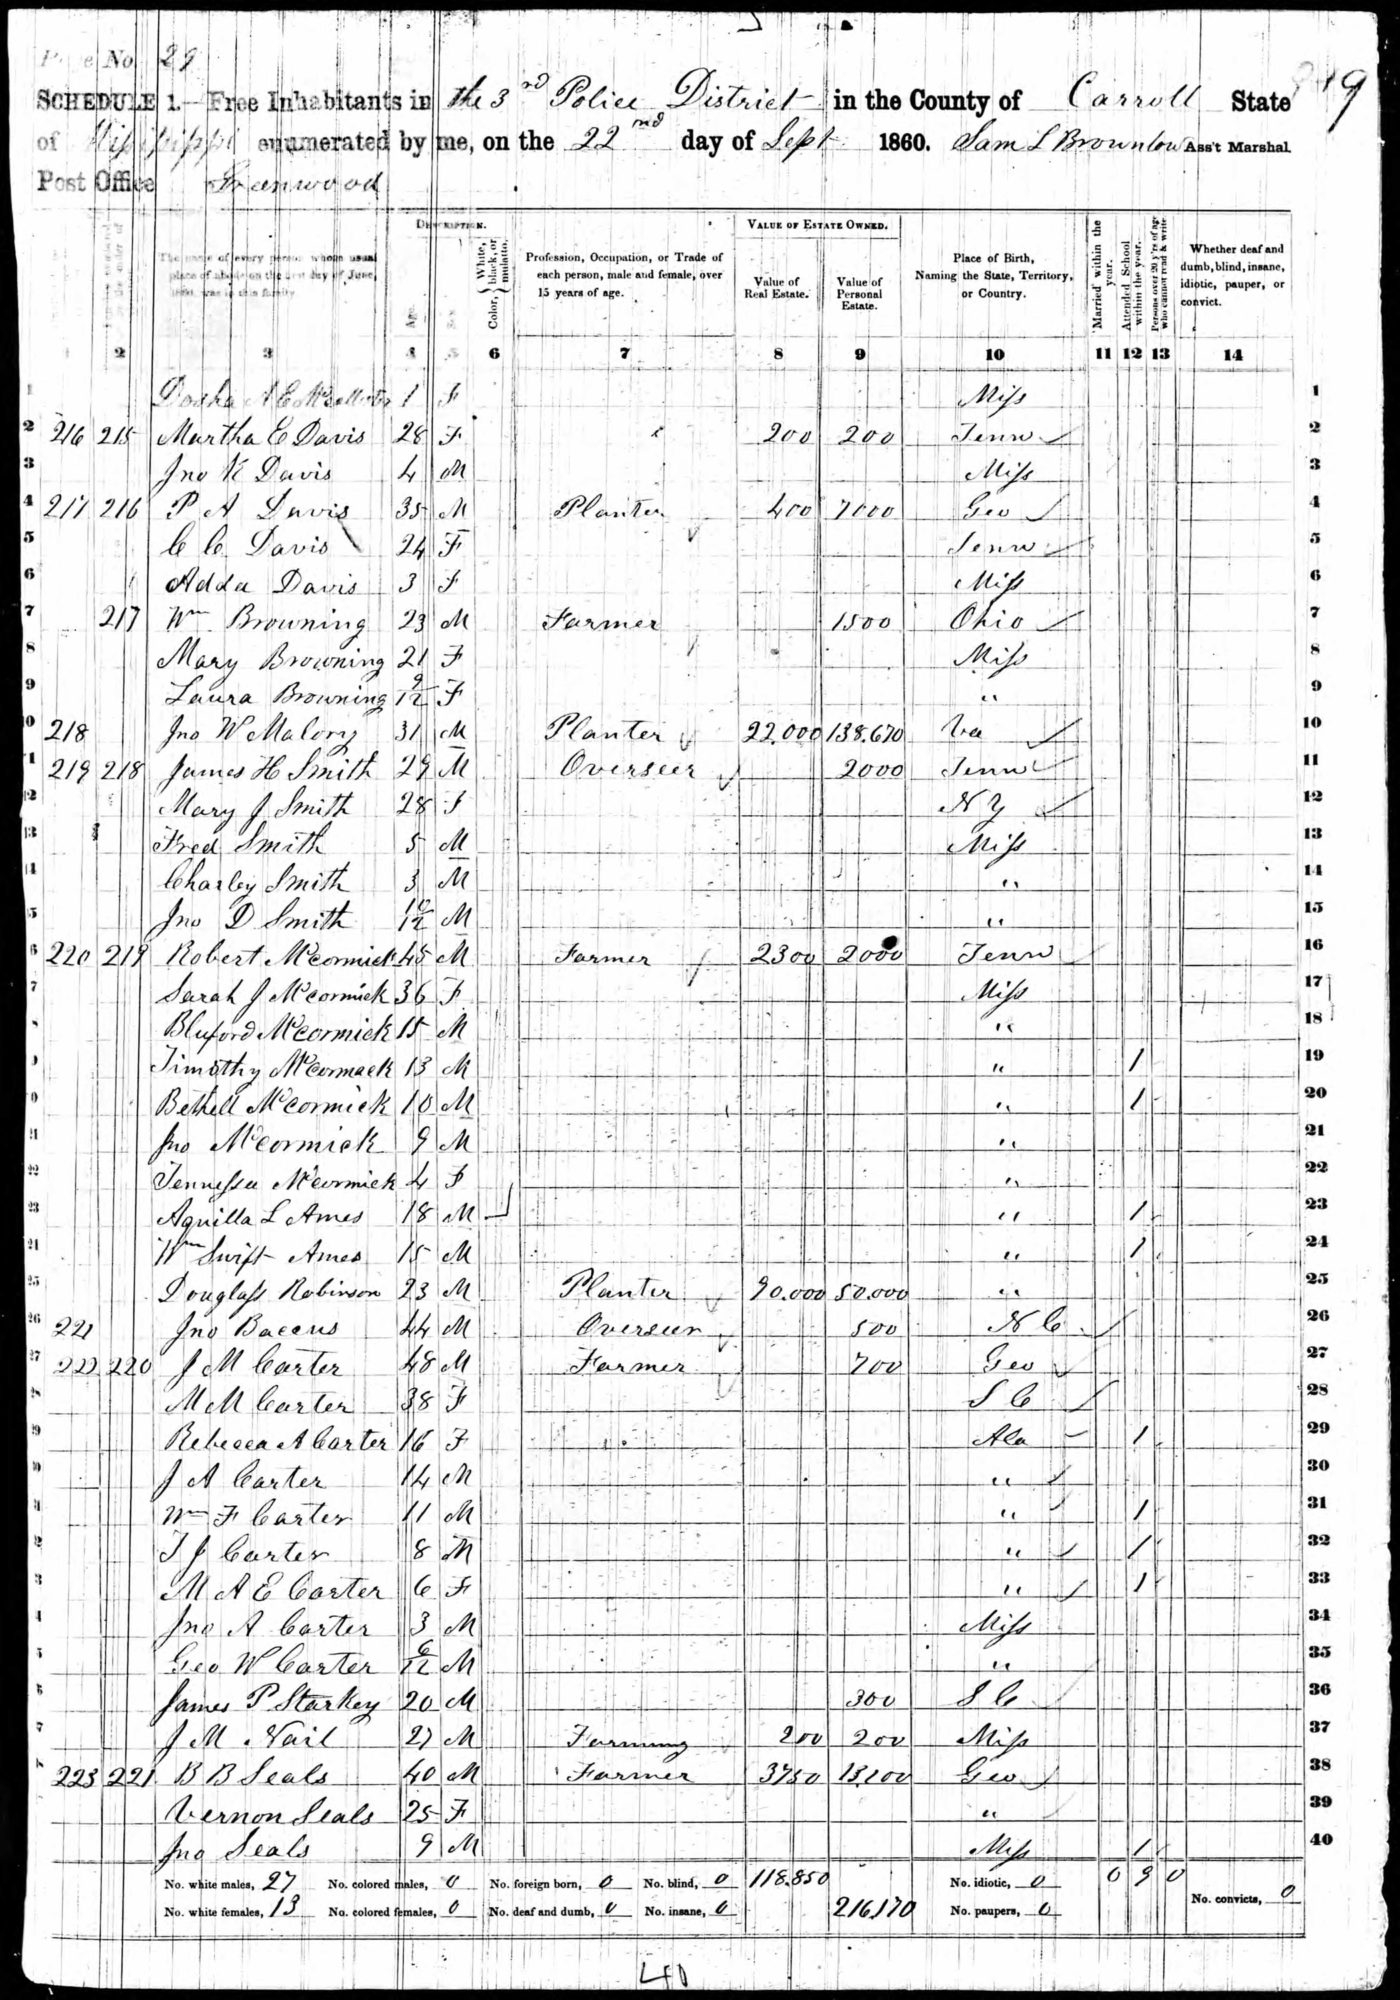 Page No. 29
SCHEDULE 1.—Free Inhabitants in the 3rd Police District in the County of Carroll State
of Mississippi enumerated by me, on the 22nd day of Sept 1860. Sam L Brownlow Ass't Marshal.
Post Office Greenwood
DESCRIPTION. VALUE OF ESTATE OWNED.
The name of every person whose usual place of abode on the first day of June, 1860, was in this family.
Age. Sex. Color, White, black, or mulatto.
Profession, Occupation, or Trade of each person, male and female, over 15 years of age.
Value of Real Estate. Value of Personal Estate.
Place of Birth, Naming the State, Territory, or Country.
Married within the year. Attended School within the year. Persons over 20 y'rs of age who cannot read & write
Whether deaf and dumb, blind, insane, idiotic, pauper, or convict.
1 2 3 4 5 6 7 8 9 10 11 12 13 14
1 Dosha A E 1 F Miss 1
2 216 215 Martha E Davis 28 F 200 200 Tenn 2
3 Jno K Davis 4 M Miss 3
4 217 216 P A Davis 35 M Planter 400 7000 Geo 4
5 C C Davis 24 F Tenn 5
6 Adda Davis 3 F Miss 6
7 217 Wm Browning 23 M Farmer 1500 Ohio 7
8 Mary Browning 21 F Miss 8
9 Laura Browning 9/12 F " 9
10 218 Jno W Malory 31 M Planter 22.000 138.670 Va 10
11 219 218 James H Smith 29 M Overseer 2000 Tenn 11
12 Mary J Smith 28 F N Y 12
13 Fred Smith 5 M Miss 13
14 Charley Smith 3 M " 14
15 Jno D Smith 10/12 M " 15
16 220 219 Robert McCormick 45 M Farmer 2300 2000 Tenn 16
17 Sarah J McCormick 36 F Miss 17
18 Bluford McCormick 15 M " 18
19 Timothy McCormack 13 M " 1 19
20 Bethell McCormick 10 M " 1 20
21 Jno McCormick 9 M " 21
22 Tennessa McCormick 4 F " 22
23 Aquilla L Ames 18 M " 1 23
24 Wm Swift Ames 15 M " 1 24
25 Douglass Robinson 23 M Planter 90.000 50.000 " 25
26 221 Jno Baccus 44 M Overseer 500 N C 26
27 222 220 J M Carter 48 M Farmer 700 Geo 27
28 M M Carter 38 F S C 28
29 Rebecca A Carter 16 F Ala 1 29
30 J A Carter 14 M " 30
31 Wm F Carter 11 M " 1 31
32 T J Carter 8 M " 1 32
33 M A E Carter 6 F " 1 33
34 Jno A Carter 3 M Miss 34
35 Geo W Carter 6/12 M " 35
36 James P Starkey 20 M 300 S C 36
37 J M Nail 27 M Farming 200 200 Miss 37
38 223 221 B B Seals 40 M Farmer 3750 13,100 Geo 38
39 Vernon Seals 25 F " 39
40 Jno Seals 9 M Miss 1 40
No. white males, 27 No. colored males, 0 No. foreign born, 0 No. blind, 0 118.850 No. idiotic, 0 0 9 0
No. white females, 13 No. colored females, 0 No. deaf and dumb, 0 No. insane, 0 216,170 No. paupers, 0 No. convicts, 0
40